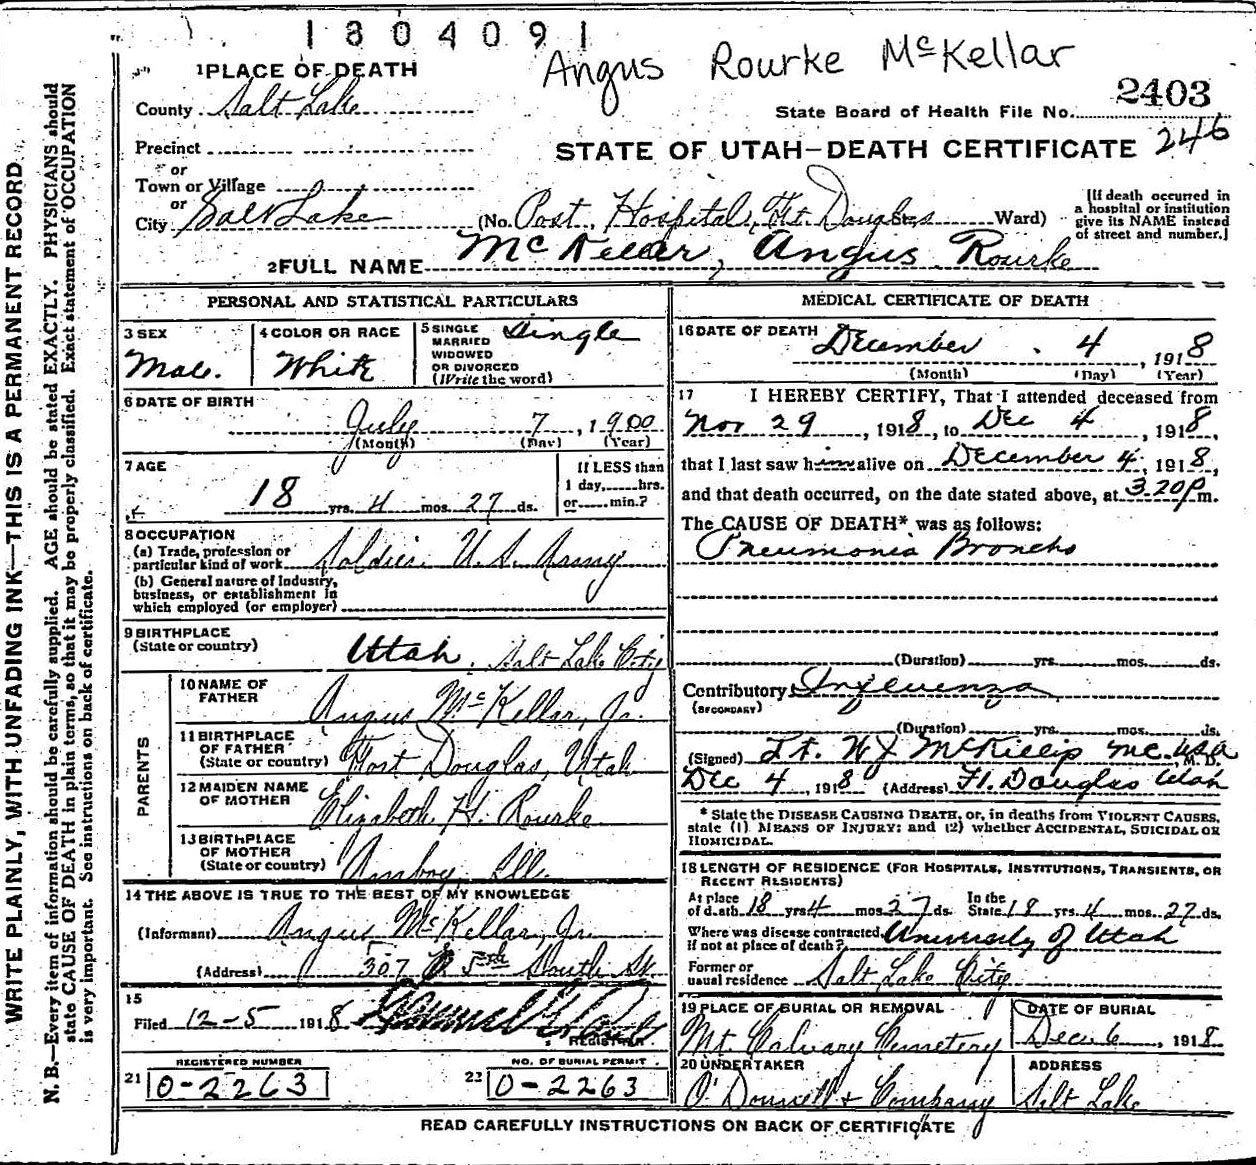 1804091
Angus Rourke McKellar
1 PLACE OF DEATH
County Salt Lake
State Board of Health File No. 2403
246
Precinct
or
Town or Village
or
City Salt Lake
STATE OF UTAH—DEATH CERTIFICATE
(No. Post Hospital, Ft. Douglas Ward)
[If death occurred in
a hospital or institution
give its NAME instead
of street and number.]
2 FULL NAME McKellar, Angus Rourke
PERSONAL AND STATISTICAL PARTICULARS
3 SEX
Male.
4 COLOR OR RACE
White
5 SINGLE
MARRIED
WIDOWED
OR DIVORCED
(Write the word)
Single
6 DATE OF BIRTH
July 7, 1900
(Month) (Day) (Year)
7 AGE
18 yrs. 4 mos. 27 ds.
If LESS than
1 day, hrs.
or min.?
8 OCCUPATION
(a) Trade, profession or
particular kind of work Soldier U. S. Army
(b) General nature of Industry,
business, or establishment in
which employed (or employer)
9 BIRTHPLACE
(State or country) Utah. Salt Lake City
PARENTS
10 NAME OF
FATHER Angus McKellar, Jr.
11 BIRTHPLACE
OF FATHER
(State or country) Fort Douglas, Utah
12 MAIDEN NAME
OF MOTHER Elizabeth H. Rourke
13 BIRTHPLACE
OF MOTHER
(State or country) Amboy Ill.
14 THE ABOVE IS TRUE TO THE BEST OF MY KNOWLEDGE
(Informant) Angus McKellar, Jr.
(Address) 307 E 5th South St.
15
Filed 12-5 1918
REGISTRAR
REGISTERED NUMBER
21 0-2263
NO. OF BURIAL PERMIT
22 0-2263
MEDICAL CERTIFICATE OF DEATH
16 DATE OF DEATH
December 4, 1918
(Month) (Day) (Year)
17 I HEREBY CERTIFY, That I attended deceased from
Nov 29, 1918, to Dec 4, 1918,
that I last saw him alive on December 4, 1918,
and that death occurred, on the date stated above, at 3 20 P m.
The CAUSE OF DEATH* was as follows:
Pneumonia Broncho
(Duration) yrs. mos. ds.
Contributory Influenza
(SECONDARY)
(Duration) yrs. mos. ds.
(Signed) Lt. W J McKillip MC. USA M. D.
Dec 4, 1918 (Address) Ft. Douglas Utah
* State the DISEASE CAUSING DEATH, or, in deaths from VIOLENT CAUSES,
state (1) MEANS OF INJURY; and (2) whether ACCIDENTAL, SUICIDAL OR
HOMICIDAL.
18 LENGTH OF RESIDENCE (FOR HOSPITALS, INSTITUTIONS, TRANSIENTS, OR
RECENT RESIDENTS)
At place
of death 18 yrs 4 mos 27 ds. In the
State 18 yrs. 4 mos. 27 ds.
Where was disease contracted,
if not at place of death? University of Utah
Former or
usual residence Salt Lake City
19 PLACE OF BURIAL OR REMOVAL
Mt. Calvary Cemetery
DATE OF BURIAL
Dec 6, 1918
20 UNDERTAKER
O'Donnell & Company
ADDRESS
Salt Lake
READ CAREFULLY INSTRUCTIONS ON BACK OF CERTIFICATE
WRITE PLAINLY, WITH UNFADING INK—THIS IS A PERMANENT RECORD
N. B.—Every item of information should be carefully supplied. AGE should be stated EXACTLY. PHYSICIANS should
state CAUSE OF DEATH in plain terms, so that it may be properly classified. Exact statement of OCCUPATION
is very important. See instructions on back of certificate.